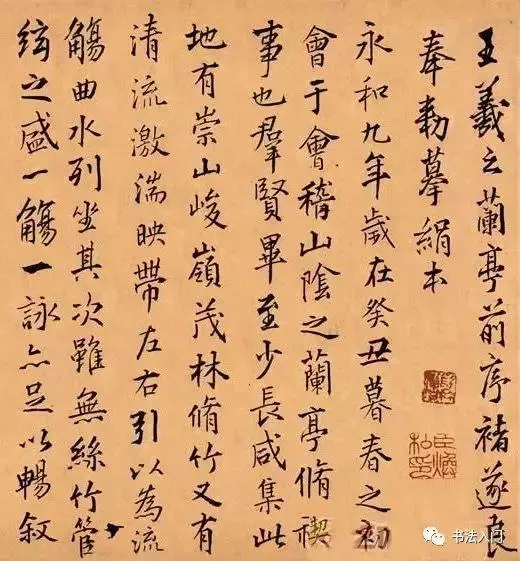 王羲之蘭亭前序褚遂良
奉勅摹絹本
永和九年歲在癸丑暮春之初
會于會稽山陰之蘭亭脩禊
事也羣賢畢至少長咸集此
地有崇山峻嶺茂林脩竹又有
清流激湍映帶左右引以為流
觴曲水列坐其次雖無絲竹管
絃之盛一觴一詠亦足以暢敘
书法入门